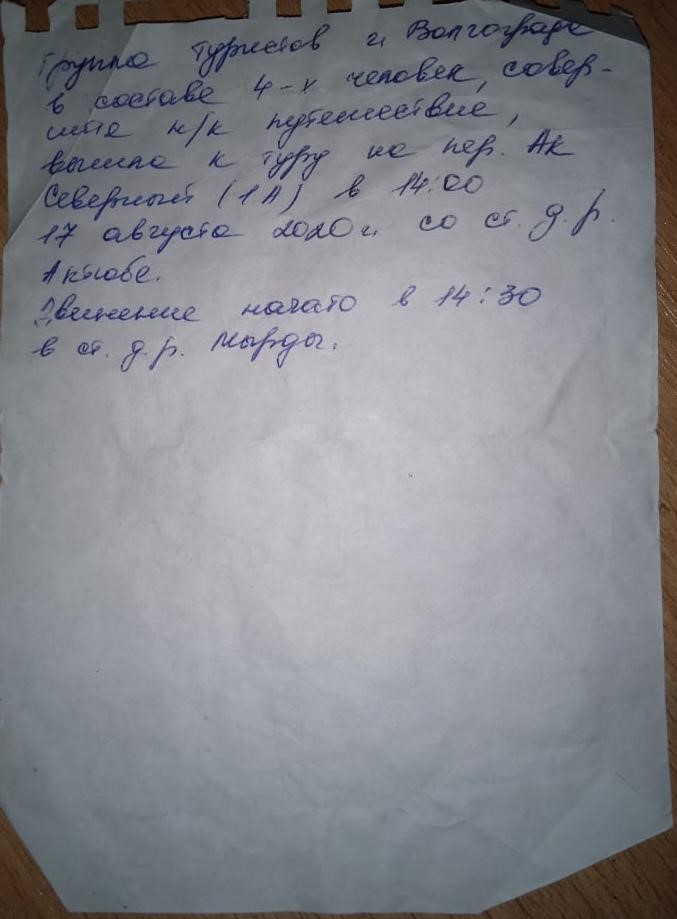 Группа туристов г. Волгограда
в составе 4-х человек, совер-
шие н/к путешествие,
вышла к туру на пер. Ак
Северный (1А) в 14:00
17 августа 2020г. со ст. д. р.
Актюбе.
Движение начато в 14:30
в ст. д. р. Мырды.